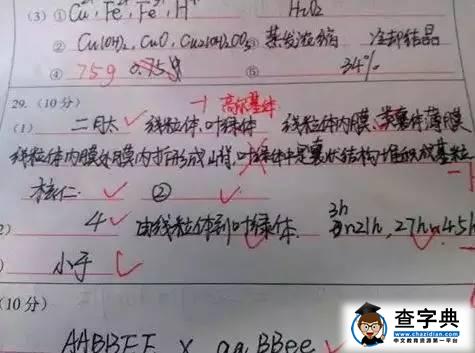 (3) Cu²⁺, Fe²⁺, Fe³⁺, H⁺ H₂O₂
② Cu(OH)₂, CuO, Cu₂(OH)₂CO₃ ⑤ 蒸发浓缩 冷却结晶
④ 75g ⑤ 34%
29. (10分) 高尔基体
(1) 二肽 线粒体, 叶绿体 线粒体内膜, 类囊体薄膜
线粒体内膜 内折形成 叶绿体中是囊状结构堆积成基粒
核仁 ②
2) 4 由线粒体到叶绿体. 3h 21h, 27h 45h
) 小于
(10分)
AABBEE × aaBBee
查字典
www.chazidian.com
中文教育资源第一平台